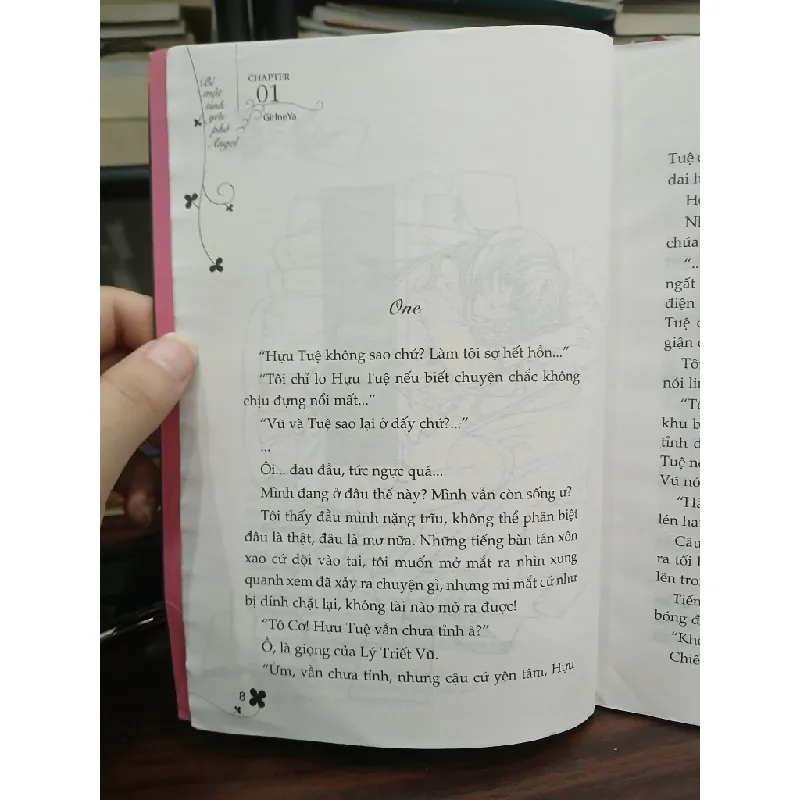 Bí
mật
tình
yêu
phố
Angel
CHAPTER
01
GirlneYa
One
“Hựu Tuệ không sao chứ? Làm tôi sợ hết hồn...”
“Tôi chỉ lo Hựu Tuệ nếu biết chuyện chắc không
chịu đựng nổi mất...”
“Vũ và Tuệ sao lại ở đấy chứ?...”
...
Ôi... đau đầu, tức ngực quá...
Mình đang ở đâu thế này? Mình vẫn còn sống ư?
Tôi thấy đầu mình nặng trĩu, không thể phân biệt
đâu là thật, đâu là mơ nữa. Những tiếng bàn tán xôn
xao cứ dội vào tai, tôi muốn mở mắt ra nhìn xung
quanh xem đã xảy ra chuyện gì, nhưng mi mắt cứ như
bị dính chặt lại, không tài nào mở ra được!
“Tô Cơ! Hựu Tuệ vẫn chưa tỉnh à?”
Ồ, là giọng của Lý Triết Vũ.
“Ừm, vẫn chưa tỉnh, nhưng cậu cứ yên tâm, Hựu
8
Tuệ
đai
chúa
“...
ngất
điện
Tuệ
giận
Tôi
nói
khu b
tỉnh
Tuệ
Vũ nó
lén
Câu
ra tối
lên
Tiến
bóng
“Khô